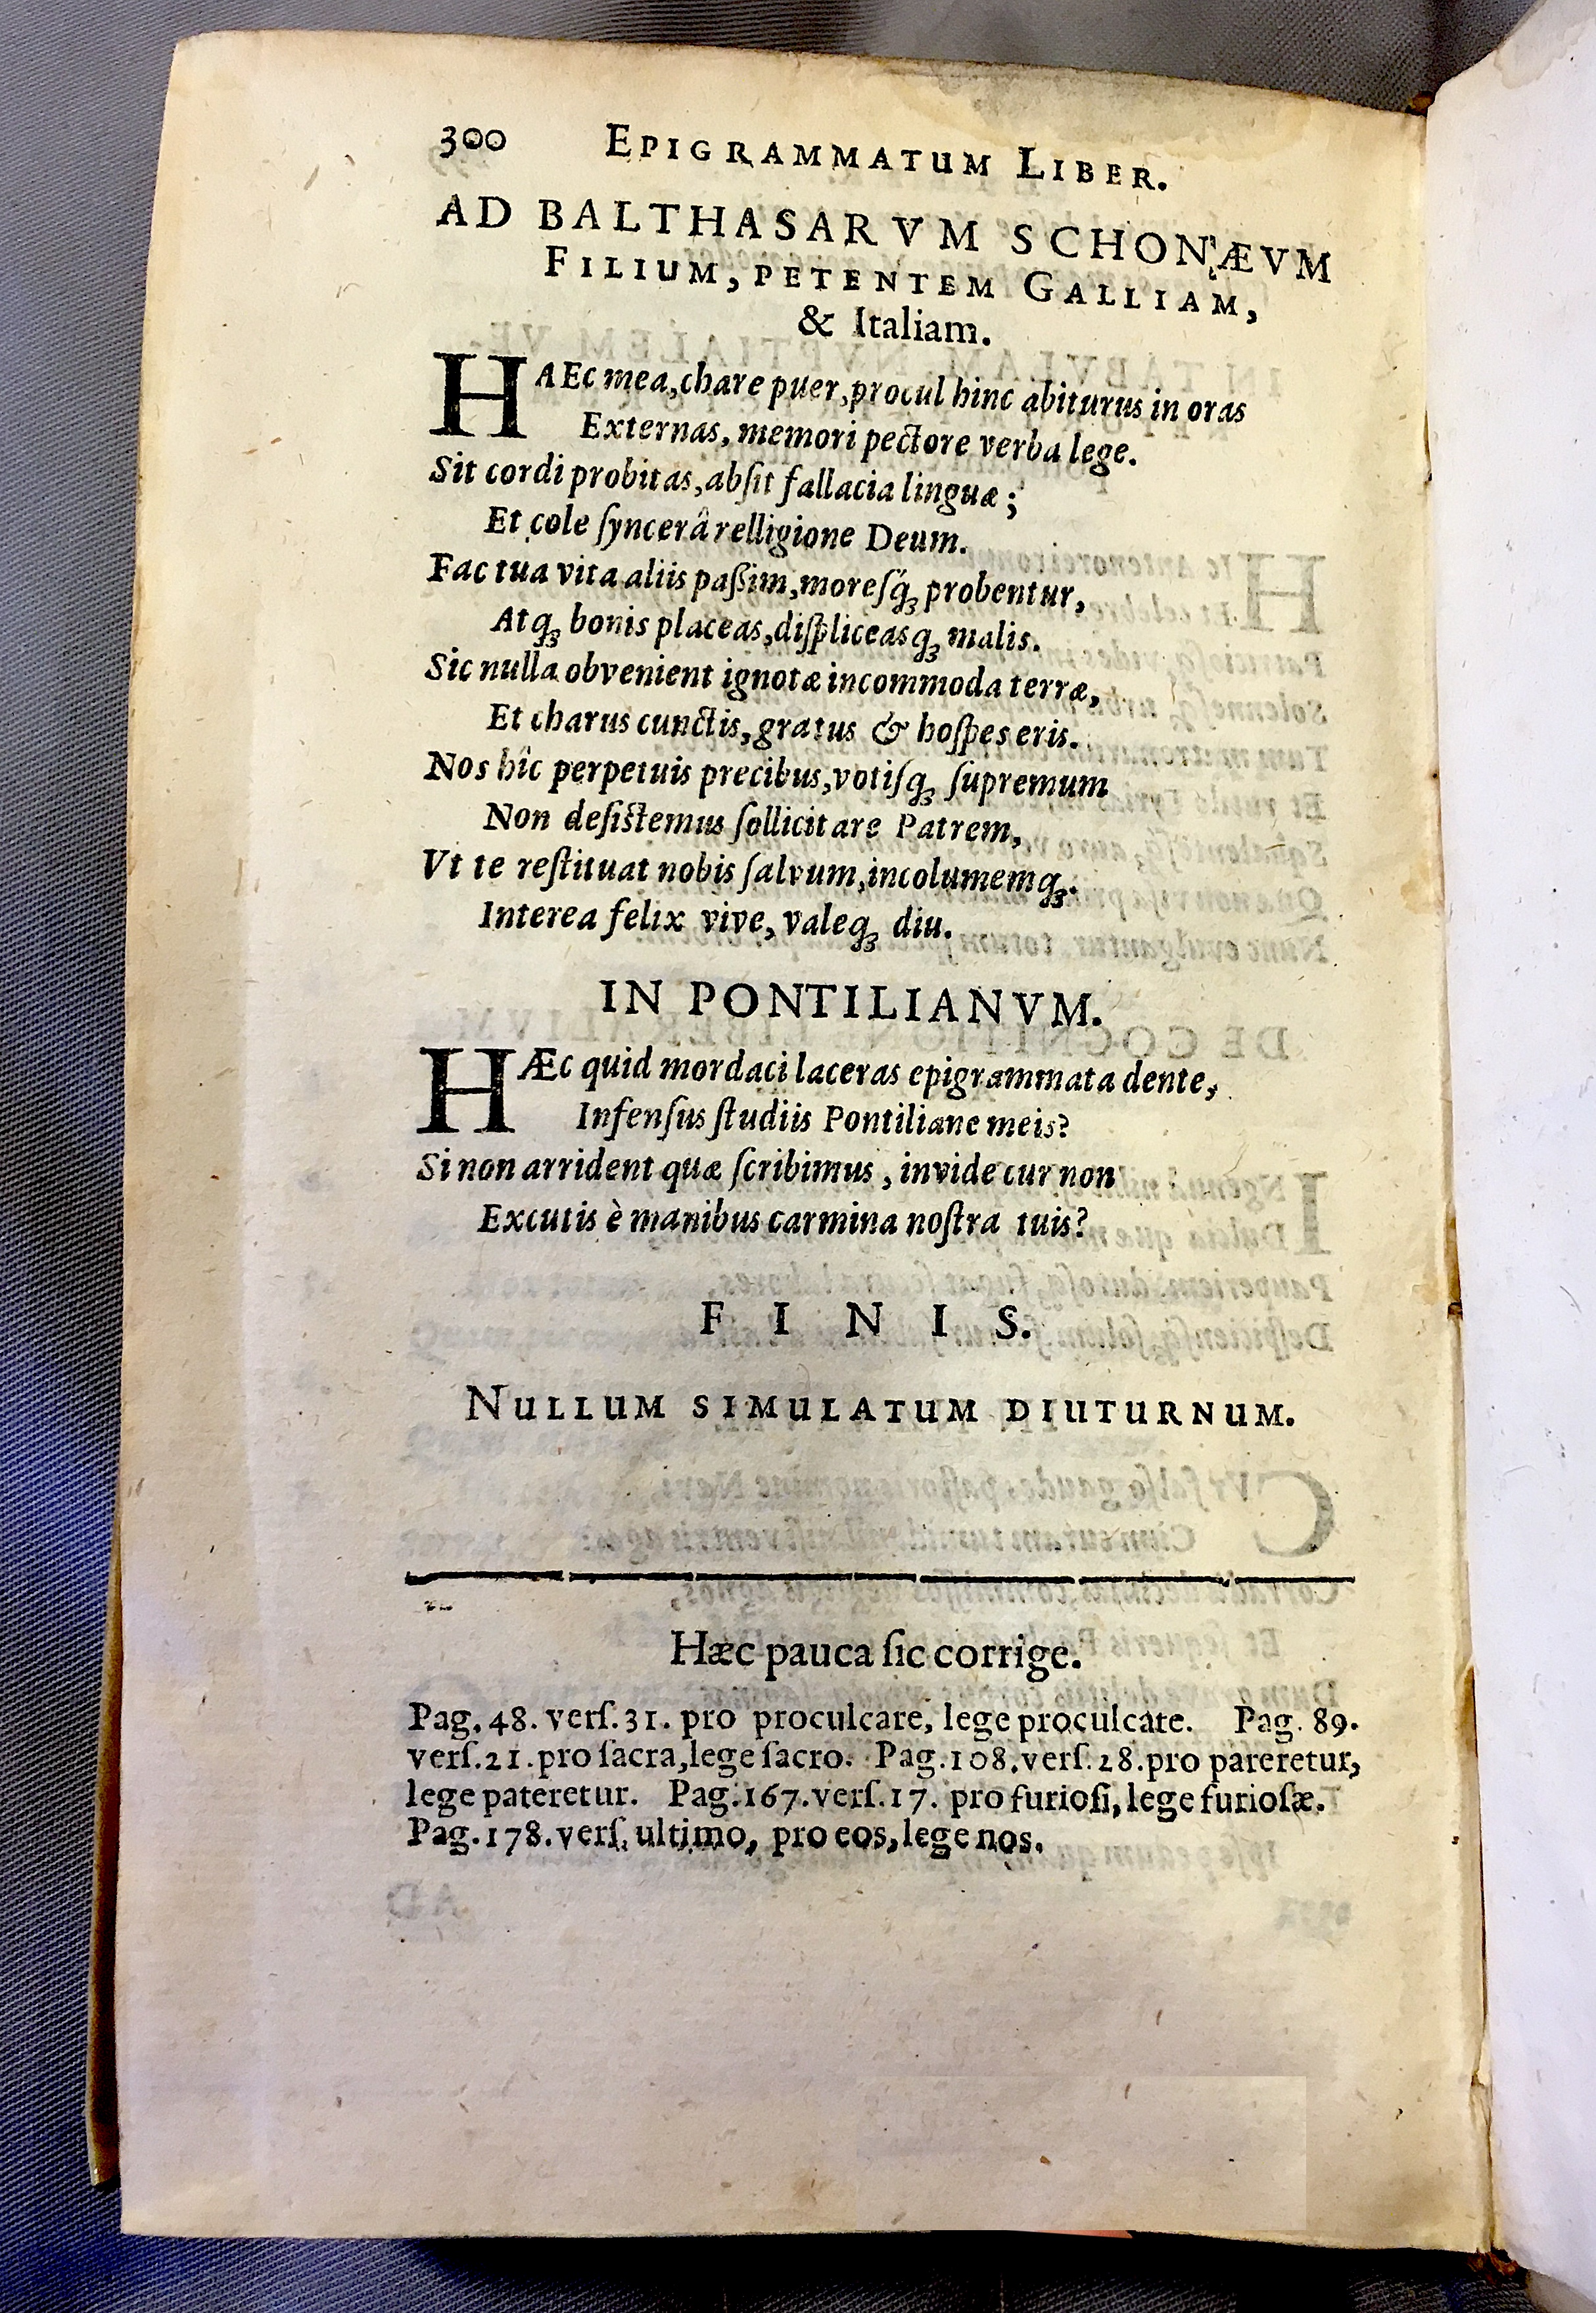 300 EPIGRAMMATUM LIBER.
AD BALTHASARVM SCHONÆVM
FILIUM, PETENTEM GALLIAM,
& Italiam.
HAEc mea, chare puer, procul hinc abiturus in oras
Externas, memori pectore verba lege.
Sit cordi probitas, abſit fallacia linguæ;
Et cole ſyncerâ relligione Deum.
Fac tua vita aliis paßim, moreſq́ꝫ probentur,
Atqꝫ bonis placeas, diſpliceasqꝫ malis.
Sic nulla obvenient ignotæ incommoda terræ,
Et charus cunctis, gratus & hoſpes eris.
Nos hîc perpetuis precibus, votiſqꝫ ſupremum
Non deſiſtemus ſollicitare Patrem,
Vt te reſtituat nobis ſalvum, incolumemqꝫ.
Interea felix vive, valeqꝫ diu.
IN PONTILIANVM.
HÆc quid mordaci laceras epigrammata dente,
Infenſus ſtudiis Pontiliane meis?
Si non arrident quæ ſcribimus, invide cur non
Excutis è manibus carmina noſtra tuis?
F I N I S.
NULLUM SIMULATUM DIUTURNUM.
Hæc pauca ſic corrige.
Pag. 48. verſ. 31. pro proculcare, lege proculcate. Pag. 89.
verſ. 21. pro ſacra, lege ſacro. Pag. 108. verſ. 28. pro pareretur,
lege pateretur. Pag. 167. verſ. 17. pro furioſi, lege furioſæ.
Pag. 178. verſ. ultimo, pro eos, lege nos.